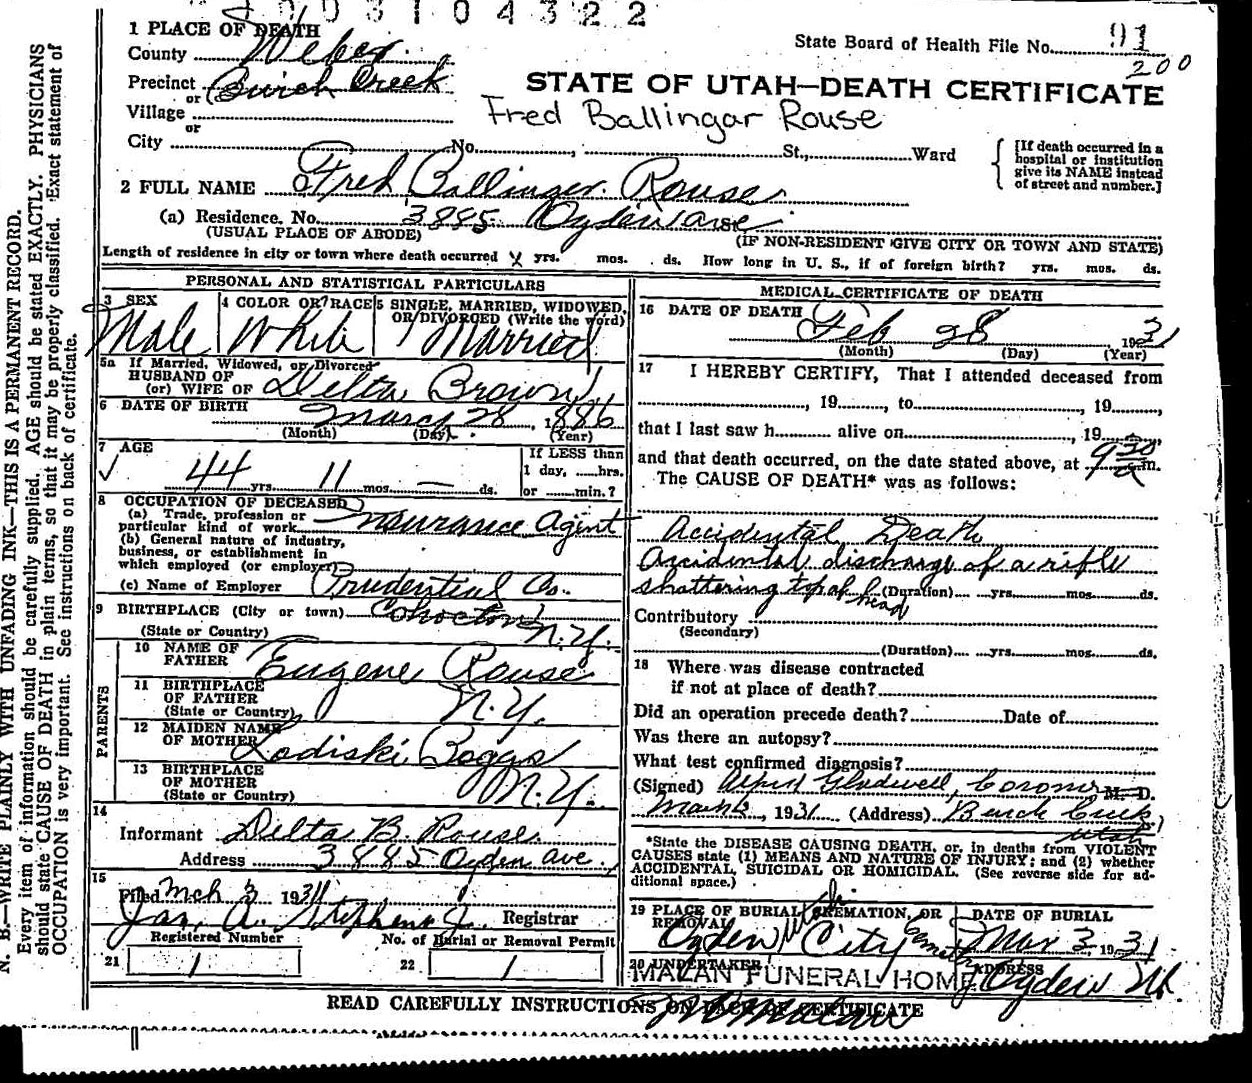 003104322
1 PLACE OF DEATH
County Weber
State Board of Health File No. 91
200
Precinct Burch Creek
or
Village
or
STATE OF UTAH—DEATH CERTIFICATE
Fred Ballingar Rouse
City No. , St., Ward
[If death occurred in a hospital or institution give its NAME instead of street and number.]
2 FULL NAME Fred Ballinger Rouse
(a) Residence. No. 3885 Ogden ave
(USUAL PLACE OF ABODE) (IF NON-RESIDENT GIVE CITY OR TOWN AND STATE)
Length of residence in city or town where death occurred yrs. mos. ds. How long in U. S., if of foreign birth? yrs. mos. ds.
PERSONAL AND STATISTICAL PARTICULARS
3 SEX
Male
4 COLOR OR RACE
White
5 SINGLE, MARRIED, WIDOWED, OR DIVORCED (Write the word)
Married
5a If Married, Widowed, or Divorced
HUSBAND OF
(or) WIFE OF Delta Brown
6 DATE OF BIRTH March 28, 1886
(Month) (Day) (Year)
7 AGE
44 yrs. 11 mos. — ds.
If LESS than
1 day, hrs.
or min.?
8 OCCUPATION OF DECEASED
(a) Trade, profession or
particular kind of work Insurance Agent
(b) General nature of industry,
business, or establishment in
which employed (or employer)
(c) Name of Employer Prudential Co.
9 BIRTHPLACE (City or town) Cohocton
(State or Country) N.Y.
PARENTS
10 NAME OF
FATHER Eugene Rouse
11 BIRTHPLACE
OF FATHER
(State or Country) N.Y.
12 MAIDEN NAME
OF MOTHER Lodiski Boggs
13 BIRTHPLACE
OF MOTHER
(State or Country) N.Y.
14
Informant Delta B. Rouse
Address 3885 Ogden ave.
15
Filed Mch 3 1931
Jas. A. Stephens Jr. Registrar
Registered Number No. of Burial or Removal Permit
21 1 22 1
MEDICAL CERTIFICATE OF DEATH
16 DATE OF DEATH
Feb 28, 1931
(Month) (Day) (Year)
17 I HEREBY CERTIFY, That I attended deceased from
, 19 , to , 19 ,
that I last saw h alive on , 19
and that death occurred, on the date stated above, at 9 30 a m.
The CAUSE OF DEATH* was as follows:
Accidental Death
Accidental discharge of a rifle
shattering top of head (Duration) yrs. mos. ds.
Contributory
(Secondary)
(Duration) yrs. mos. ds.
18 Where was disease contracted
if not at place of death?
Did an operation precede death? Date of
Was there an autopsy?
What test confirmed diagnosis?
(Signed) Alfred Gladwell, Coroner M. D.
, 1931 (Address) Burch Creek
Utah
*State the DISEASE CAUSING DEATH, or, in deaths from VIOLENT
CAUSES state (1) MEANS AND NATURE OF INJURY; and (2) whether
ACCIDENTAL, SUICIDAL OR HOMICIDAL. (See reverse side for ad-
ditional space.)
19 PLACE OF BURIAL, CREMATION, OR
REMOVAL
Ogden City Cemetery Utah
DATE OF BURIAL
Mar 3 1931
20 UNDERTAKER
MALAN FUNERAL HOME
ADDRESS
Ogden Ut.
READ CAREFULLY INSTRUCTIONS ON BACK OF CERTIFICATE
N. B.—WRITE PLAINLY WITH UNFADING INK—THIS IS A PERMANENT RECORD.
Every item of information should be carefully supplied. AGE should be stated EXACTLY. PHYSICIANS
should state CAUSE OF DEATH in plain terms, so that it may be properly classified. Exact statement of
OCCUPATION is very important. See instructions on back of certificate.